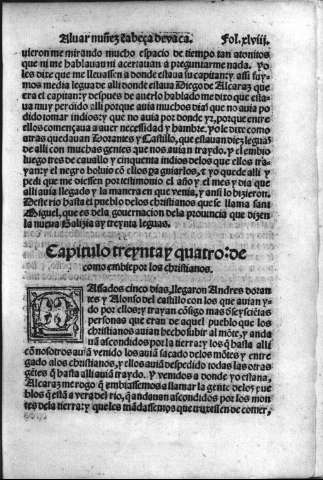 Aluar nuñez cabeça de vaca. Fol. xlviij.
uieron me mirando mucho espacio de tiempo tan atonitos
que ni me hablauan ni acertauan a preguntarme nada. Yo
les dixe que me lleuassen a donde estaua su capitan: y assi fuy-
mos media legua de alli donde estaua Diego de Alcaraz que
era el capitan: y despues de auerlo hablado me dixo que esta-
ua muy perdido alli porque auia muchos dias que no auia po
dido tomar indios: y que no auia por donde yr, porque entre
ellos començaua a auer necessidad y hambre. yo le dixe como
atras quedauan Dorantes y Castillo, que estauan diez leguas
de alli con muchas gentes que nos auian traydo. y el embio
luego tres de cauallo y cinquenta indios delos que ellos tra-
yan: y el negro boluio cō ellos pa guiarlos, τ yo quede alli y
pedi que me diessen por testimonio el año y el mes y dia que
alli auia llegado y la manera en que venia, y ansi lo hizieron.
Deste rio hasta el pueblo delos christianos que se llama sant
Miguel, que es dela gouernacion dela prouincia que dizen
la nueua Galizia ay treynta leguas.
Capitulo treynta y quatro: de
como embie por los christianos.
PAssados cinco dias, llegaron Andres doran
tes y Alonso del castillo con los que auian y-
do por ellos; y trayan cōsigo mas de seyscientas
personas que eran de aquel pueblo que los
christianos auian hecho subir al mōte, y andā
uā ascondidos por la tierra: y los q̄ hasta alli
cō nosotros auiā venido los auiā sacado delos mōtes y entre
gado alos christianos, y ellos auiā despedido todas las otras
gētes q̄ hasta alli auiā traydo. Y venidos a donde yo estaua,
Alcaraz me rogo q̄ embiassemos a llamar la gente delos pue
blos q̄ estā a vera del rio, q̄ andauan ascondidos por los mon
tes dela tierra: y que les mādassemos que truxessen de comer,